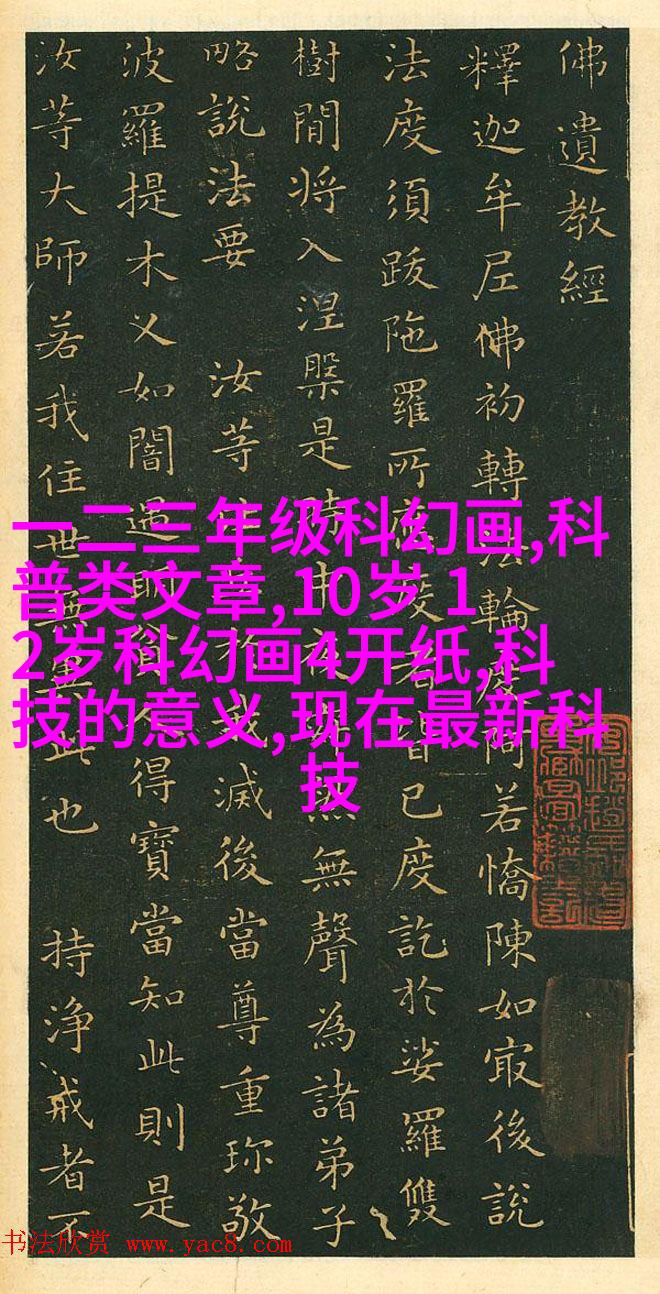 佛遺教經
釋迦牟尼佛初轉法輪度阿若憍陳如㝡後說
法度須跋陁羅所應度者皆已度訖於娑羅雙
樹間將入涅槃是時中夜寂然無聲為諸弟子
略說法要 汝等比丘於我滅後當尊重珎敬
波羅提木义如闇遇明貧人得寶當知此則是
汝等大師若我住世無異此也 持淨戒者不
一二三年级科幻画,科
普类文章,10岁 1
2岁科幻画4开纸,科
技的意义,现在最新科
技
书法欣赏 www.yac8.com